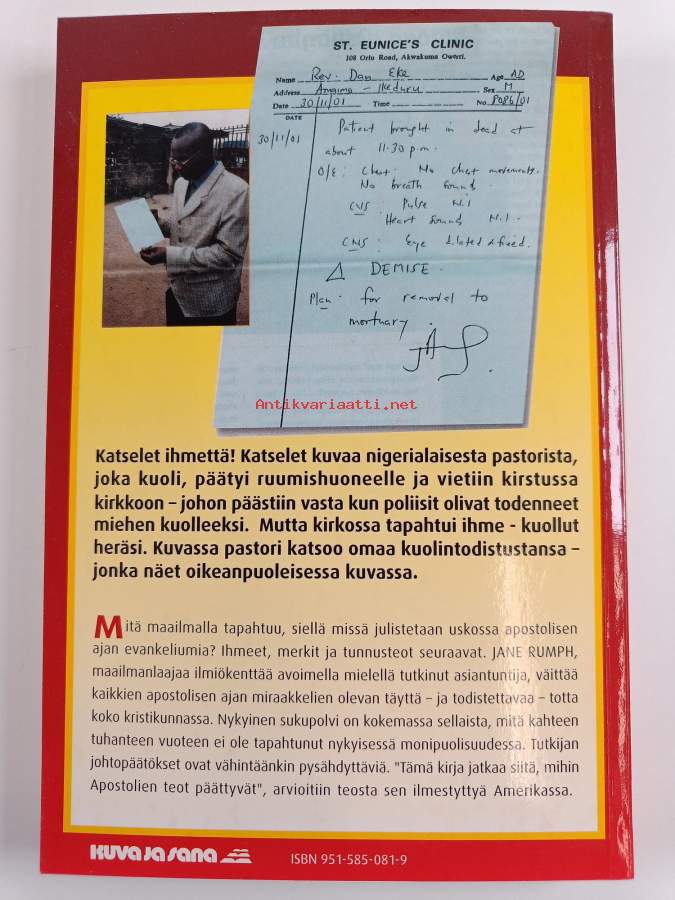 ST. EUNICE'S CLINIC
108 Orlu Road, Akwakuma Owerri.
Name Rev. Dan Eke Age AD
Address Amaimo - Ikeduru Sex M
Date 30/11/01 Time No. 8086/01
DATE
30/11/01 Patient brought in dead at
about 11.30 p.m.
O/E: Chest: No chest movements.
No breath sound.
CVS: Pulse Nil
Heart sound Nil.
CNS: Eye dilated & fixed.
Δ DEMISE.
Plan. for removal to
mortuary.
Antikvariaatti.net
Katselet ihmettä! Katselet kuvaa nigerialaisesta pastorista,
joka kuoli, päätyi ruumishuoneelle ja vietiin kirstussa
kirkkoon – johon päästiin vasta kun poliisit olivat todenneet
miehen kuolleeksi. Mutta kirkossa tapahtui ihme - kuollut
heräsi. Kuvassa pastori katsoo omaa kuolintodistustansa –
jonka näet oikeanpuoleisessa kuvassa.
Mitä maailmalla tapahtuu, siellä missä julistetaan uskossa apostolisen
ajan evankeliumia? Ihmeet, merkit ja tunnusteot seuraavat. JANE RUMPH,
maailmanlaajaa ilmiökenttää avoimella mielellä tutkinut asiantuntija, väittää
kaikkien apostolisen ajan miraakkelien olevan täyttä – ja todistettavaa – totta
koko kristikunnassa. Nykyinen sukupolvi on kokemassa sellaista, mitä kahteen
tuhanteen vuoteen ei ole tapahtunut nykyisessä monipuolisuudessa. Tutkijan
johtopäätökset ovat vähintäänkin pysähdyttäviä. "Tämä kirja jatkaa siitä, mihin
Apostolien teot päättyvät", arvioitiin teosta sen ilmestyttyä Amerikassa.
kuva ja sana ISBN 951-585-081-9